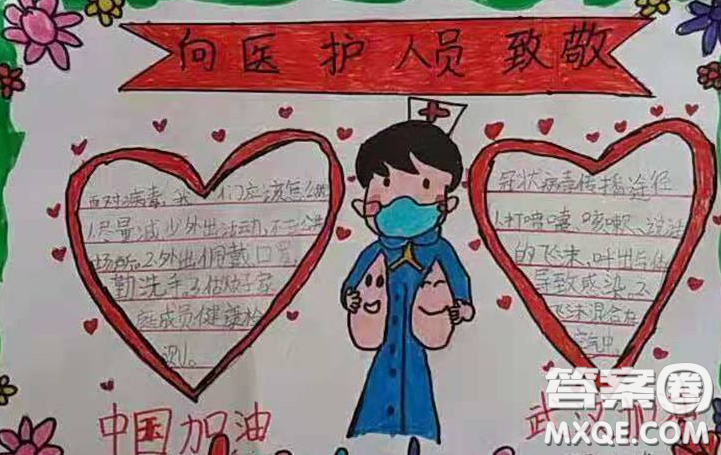 向医护人员致敬
面对病毒，我们应该怎么做
1.尽量减少外出活动，不去公共
场所。2.外出佩戴口罩，
勤洗手。3.估好家
庭成员健康检
测。
冠状病毒传播途径
1.打喷嚏、咳嗽、说话
的飞沫，呼出气体
导致感染。2.
飞沫混合在
空气中
中国加油
武汉加油
答案圈
MXQE.COM